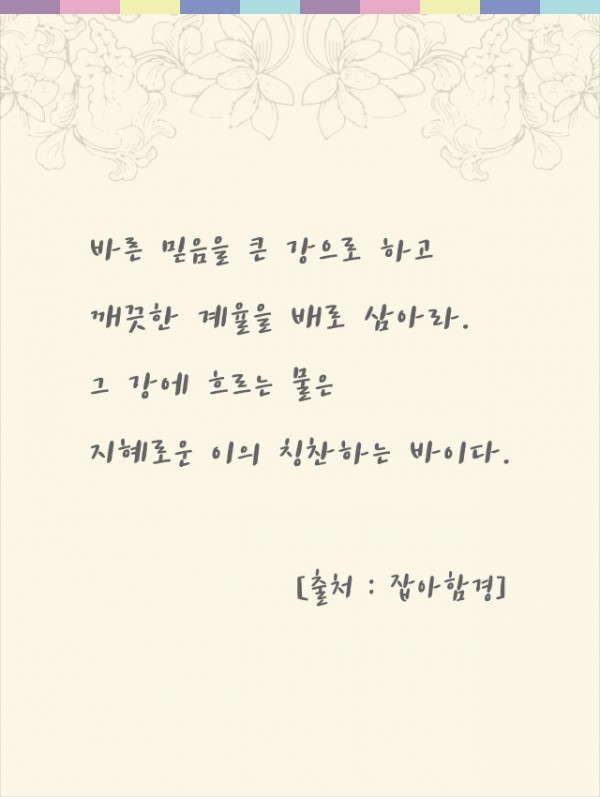 바른 믿음을 큰 강으로 하고
깨끗한 계율을 배로 삼아라.
그 강에 흐르는 물은
지혜로운 이의 칭찬하는 바이다.
[출처 : 잡아함경]